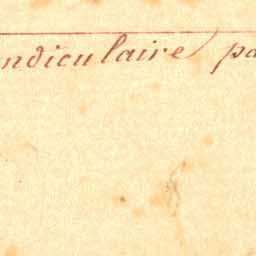 ndiculaire pa